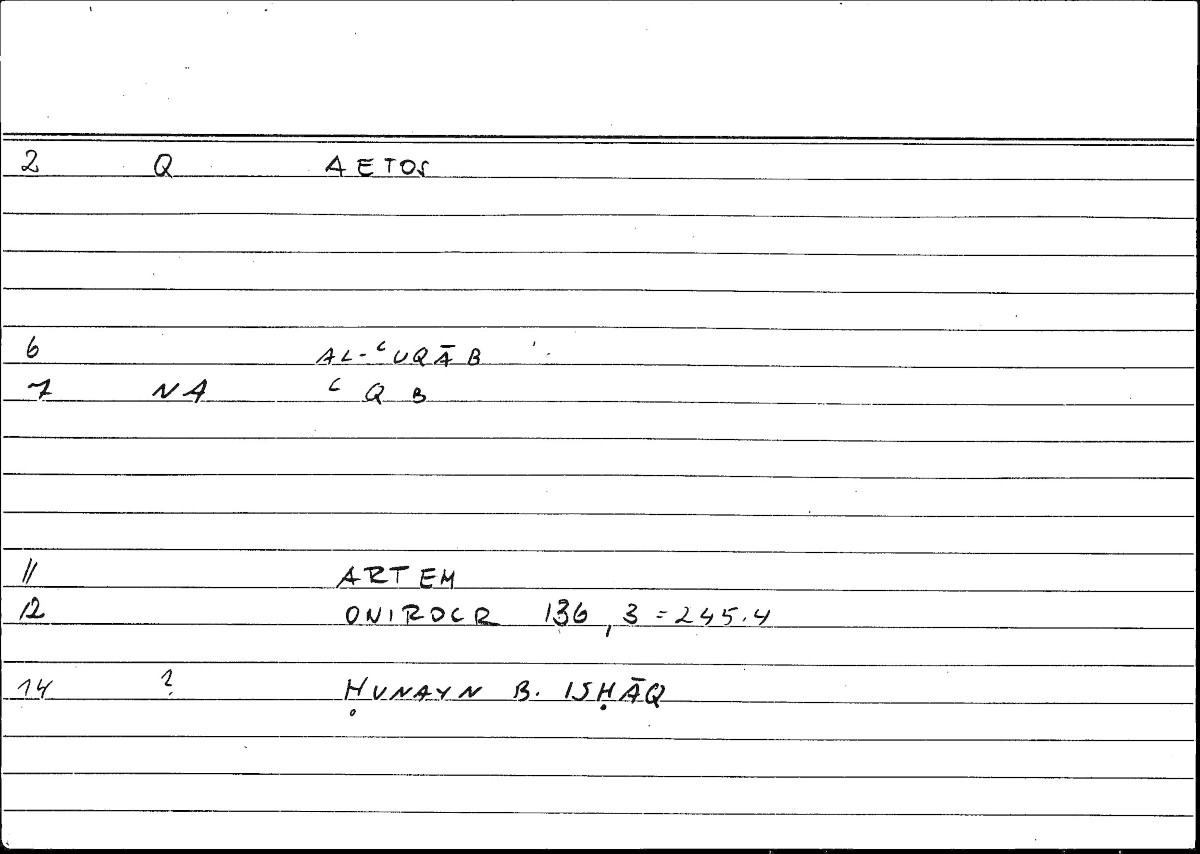 2 Q AETOS
6 AL-ʿUQĀB
7 NA ʿ Q B
11 ARTEM
12 ONIROCR 136,3=245.4
14 ? ḤUNAYN B. ISḤĀQ